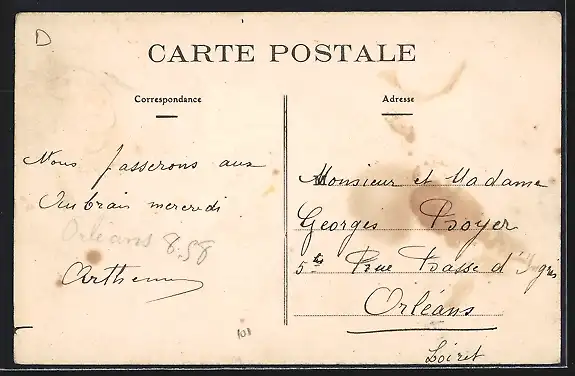 D
CARTE POSTALE
Correspondance
Nous passerons aux
Aubrais mercredi
Orléans 8.98
101
Adresse
Monsieur et Madame
Georges Boyer
5 Rue Basse d'Ingré
Orléans
Loiret